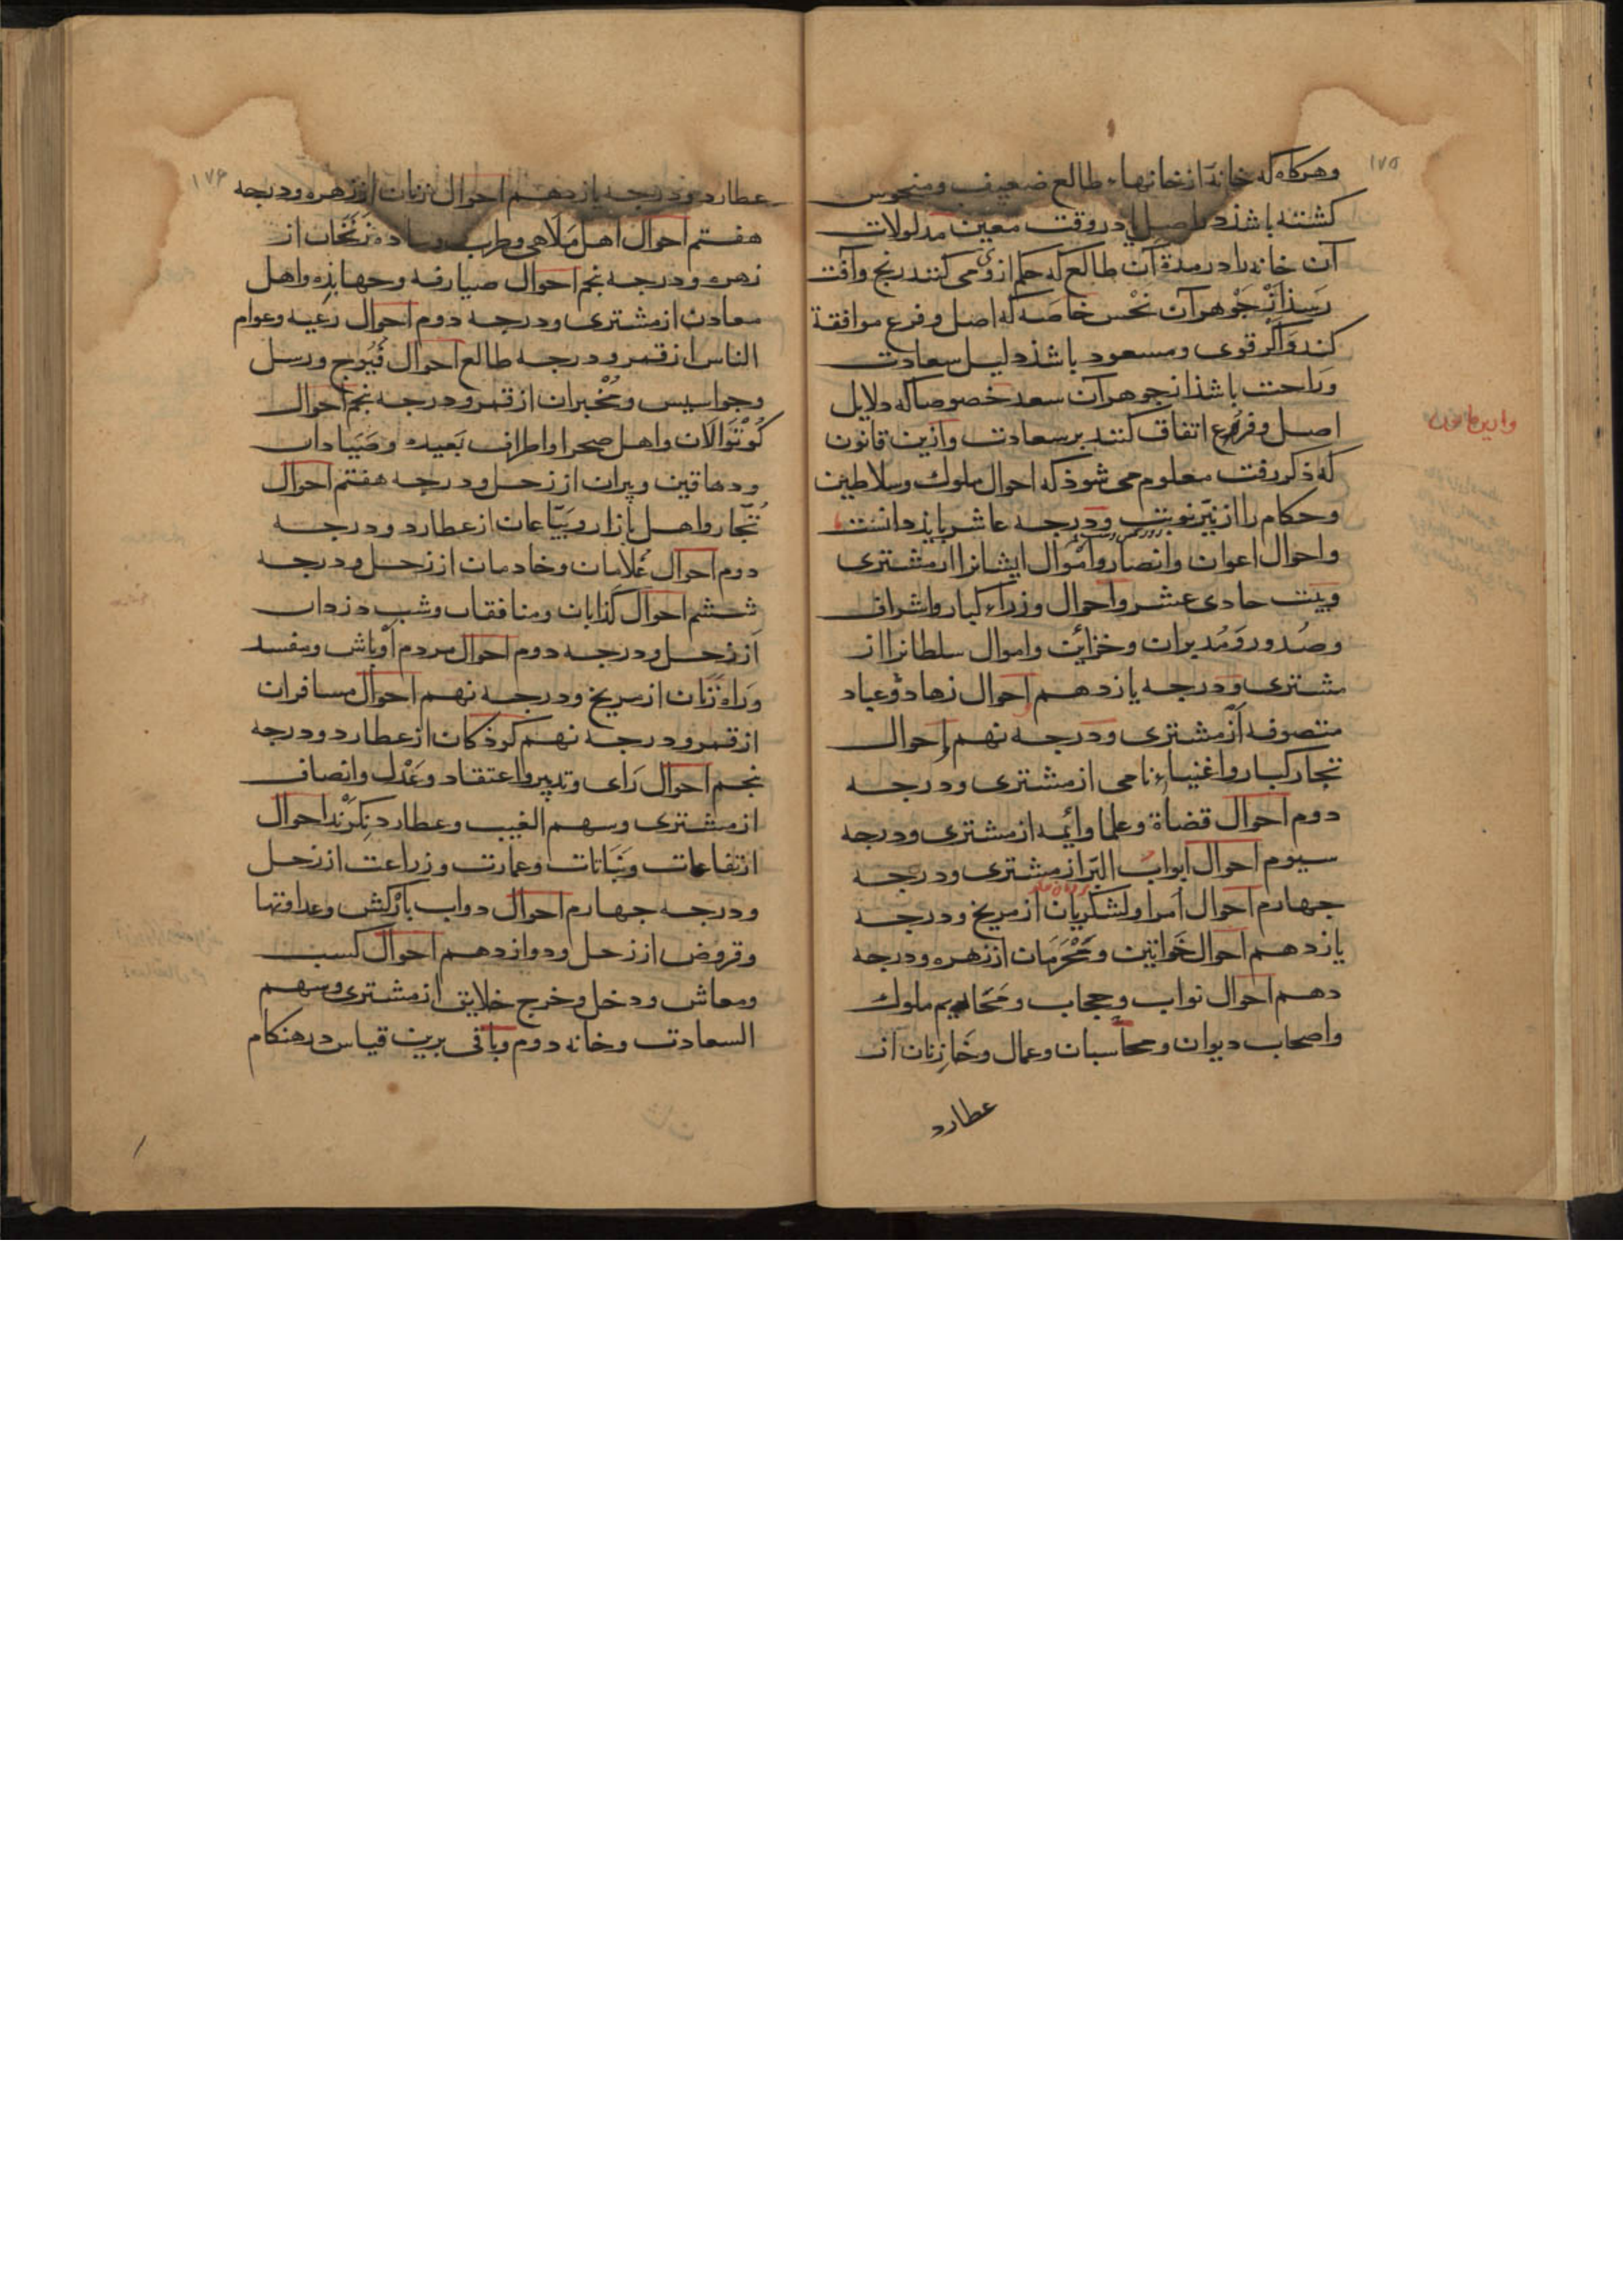 ۱۷۵
وهرکاه که خانهٔ از خانهاء طالع ضعیف ومنحوس
کشته باشذ در اصل یا در وقت معین مدلولات
آن خانه را در مدة آن طالع که حکم از وی می کنند رنج وآفت
رسذ از جوهر آن نحس خاصه که اصل و فرع موافقة
کند واکر قوی ومسعود باشذ دلیل سعادت
وراحت باشذ از جوهر آن سعد خصوصا که دلایل
اصل وفرع اتفاق کنند بر سعادت وازین قانون
که ذکر رفت معلوم می شوذ که احوال ملوک وسلاطین
وحکام را از نیر نوبت ودرجه عاشر بایذ دانست
واحوال اعوان وانصار واموال ایشانرا از مشتری
وبیت حادی عشر واحوال وزراء کبار واشراف
وصدور ومدبران وخزاین واموال سلطانرا از
مشتری ودرجه یازدهم احوال زهاد وعباد
متصوفه از مشتری ودرجه نهم احوال
تجار کبار واغنیاء نامی از مشتری ودرجه
دوم احوال قضاة وعلما وائمه از مشتری ودرجه
سیوم احوال ابواب البر از مشتری ودرجه
جهارم احوال امرا ولشکریان از مریخ ودرجه
یازدهم احوال خواتین ومحرمان از زهره ودرجه
دهم احوال نواب وحجاب ومخادیم ملوک
واصحاب دیوان ومحاسبان وعمال وخازنان از
عطارد
وازین قانون
۱۷۶
عطارد ودرجه یازدهم احوال زنان از زهره ودرجه
هفتم احوال اهل ملاهی وطرب وساده زنخان از
زهره ودرجه نجم احوال صیارفه وجهابذه واهل
معادن از مشتری ودرجه دوم احوال رعیه وعوام
الناس از قمر ودرجه طالع احوال فیوج ورسل
وجواسیس ومخبران از قمر ودرجه نجم احوال
کوتوالان واهل صحرا واطراف بعیده وصیادان
ودهاقین وپیران از زحل ودرجه هفتم احوال
تجار واهل بازار وبیاعان از عطارد ودرجه
دوم احوال غلامان وخادمان از زحل ودرجه
ششم احوال کذابان ومنافقان وشب دزدان
از زحل ودرجه دوم احوال مردم اوباش ومفسد
وراه زنان از مریخ ودرجه نهم احوال مسافران
از قمر ودرجه نهم کوذکان از عطارد ودرجه
نجم احوال رای وتدبیر واعتقاد وعدل وانصاف
از مشتری وسهم الغیب وعطارد نکرند احوال
ارتفاعات ونباتات وعمارت وزراعت از زحل
ودرجه جهارم احوال دواب بارکش وعداوتها
وقروض از زحل ودوازدهم احوال کسب
ومعاش ودخل وخرج خلایق از مشتری وسهم
السعادت وخانه دوم وباقی برین قیاس در هنکام